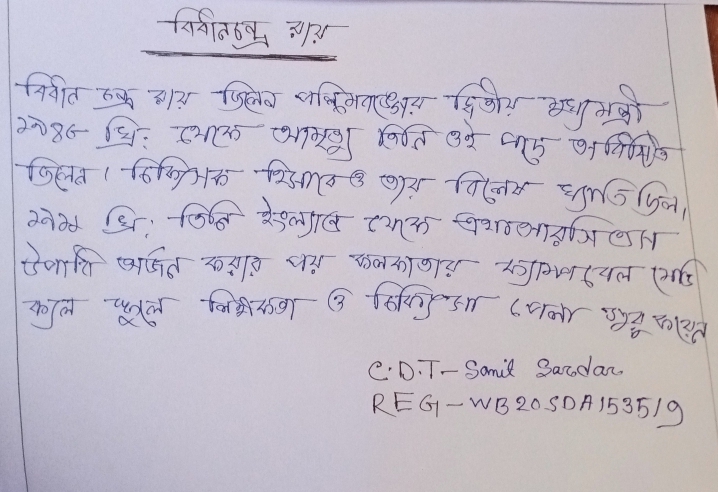 বিধান চন্দ্র রায়
বিধান চন্দ্র রায় ছিলেন পশ্চিমবঙ্গের দ্বিতীয় মুখ্যমন্ত্রী
১৯৪৮ খ্রি: থেকে আমৃত্যু তিনি ওই পদে অধিষ্ঠিত
ছিলেন। চিকিৎসক হিসাবেও তার বিশেষ খ্যাতি ছিল,
খ্রি: তিনি ইংল্যান্ড থেকে এফআরসিএস
উপাধি অর্জন করার পর কলকাতার ক্যাম্পবেল মেডি
ক্যাল স্কুলে শিক্ষকতা ও চিকিৎসা পেশা শুরু করেন
C.D.T- Samit Sardar
REG-WB20SDA153519